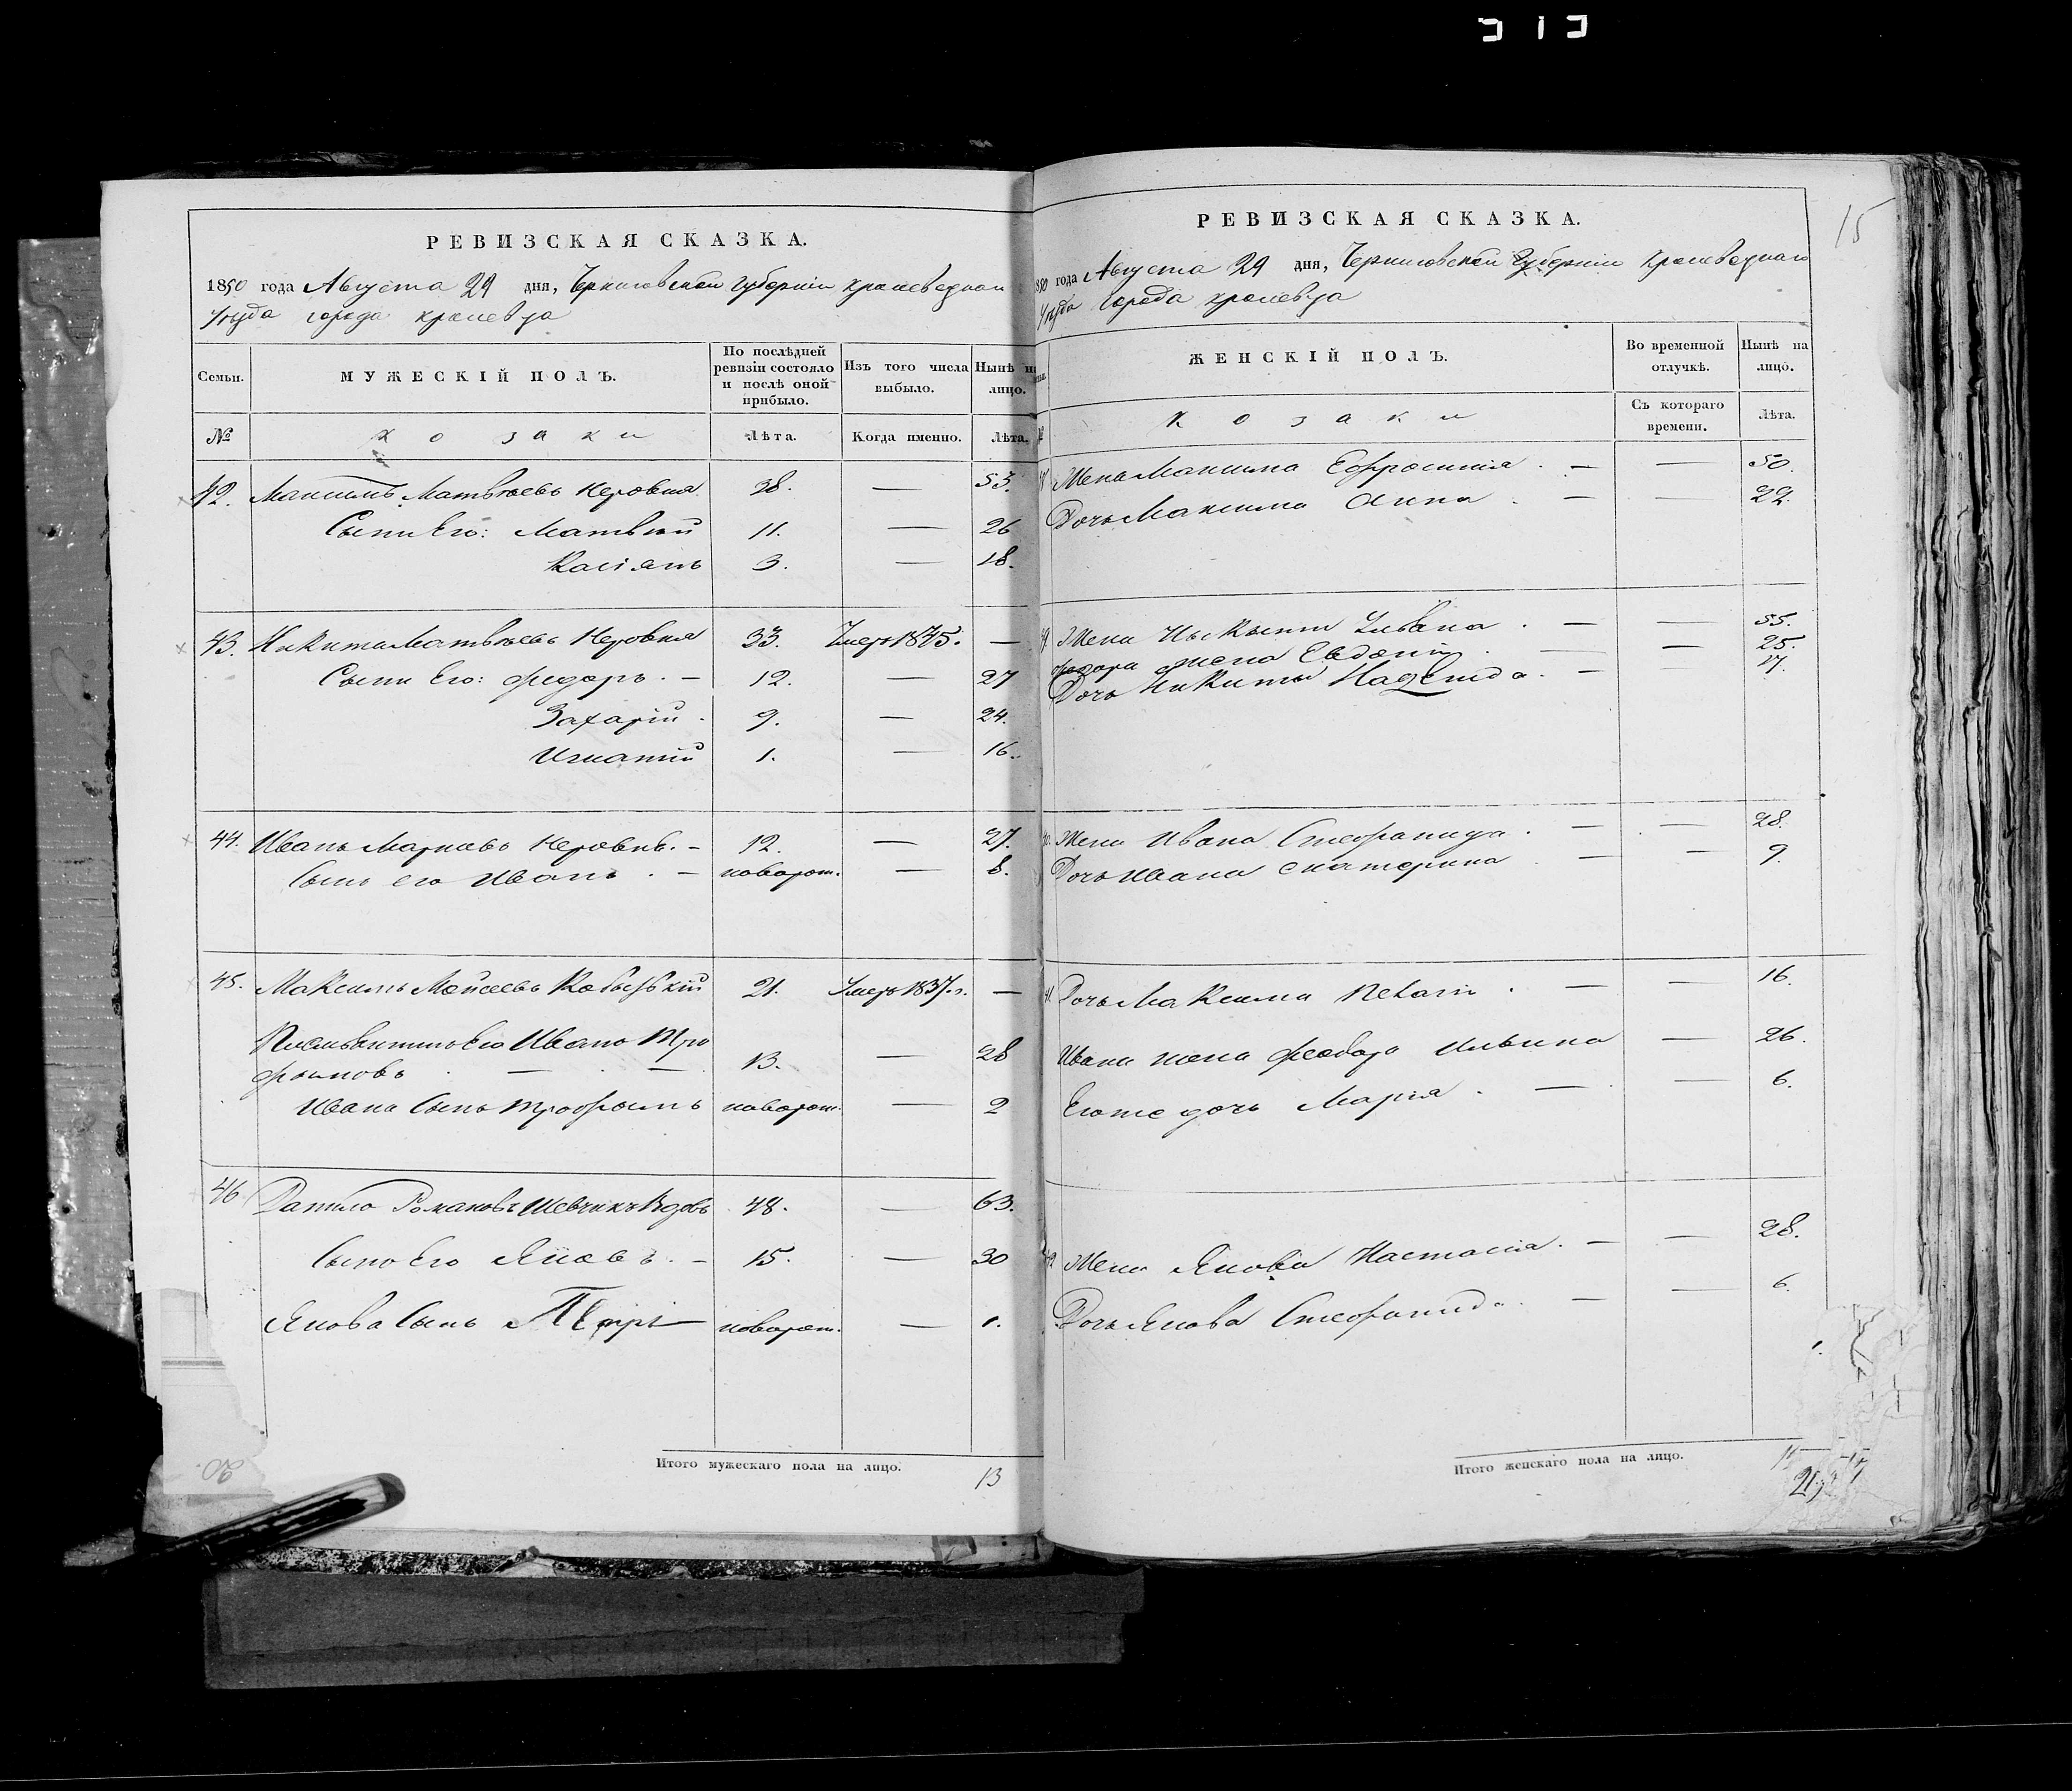 313
РЕВИЗСКАЯ СКАЗКА.
1850 года Августа 29 дня, Черниговской Губерніи кролевецкаго
уѣзда города кролевца
Семьи.
МУЖЕСКІЙ ПОЛЪ.
По послѣдней ревизіи состояло и послѣ оной прибыло.
Изъ того числа выбыло.
Нынѣ на лицо.
№
козаки
Лѣта.
Когда именно.
Лѣта.
42. Максимъ Матвѣевъ Неровня 38. — 53.
Сыни Его: Матвѣй 11. — 26
Касіянъ 3. — 18.
43. Никита Матвѣевъ Неровня 33. Умеръ 1845. —
Сыни Его: Федоръ. — 12. — 27
Захарій. 9. — 24.
Игнатій 1. — 16.
44. Иванъ Марковъ Неровня. — 12. — 27.
Сынъ его Иванъ. — новорож. — 8.
45. Максимъ Мойсеевъ 21. Умеръ 1837. г. —
Его Иванъ Тро
фимовъ. — . — 13. — 28
Ивана Сынъ Трофимъ новорож. — 2
46. Данило Романовъ Шевчикъ Вдовъ 48. — 63.
Сынъ Его Яковъ. — 15. — 30
Якова Сынъ Петръ новорож. — 1.
Итого мужескаго пола на лицо. 13
15
РЕВИЗСКАЯ СКАЗКА.
1850 года Августа 29 дня, Черниговской Губерніи кролевецкаго
уѣзда города кролевца
ЖЕНСКІЙ ПОЛЪ.
Во временной отлучкѣ.
Нынѣ на лицо.
козаки
Съ котораго времени.
Лѣта.
Жена Максима Ефросинія. — — 50.
Дочь Максима Анна. — — 22.
Жена Ульяна. — — 55.
Федора жена Евдокія. — — 25.
Дочь Никиты Надежда. — — 17.
Жена Ивана Стефанида. — — 28.
Дочь Ивана Екатерина. — — 9.
Дочь Максима. — — 16.
Ивана жена Ильина — 26.
Егоже дочь Марія. — — 6.
Жена Якова Настасія. — — 28.
Дочь Якова Стефанида. — — 6.
Итого женскаго пола на лицо.